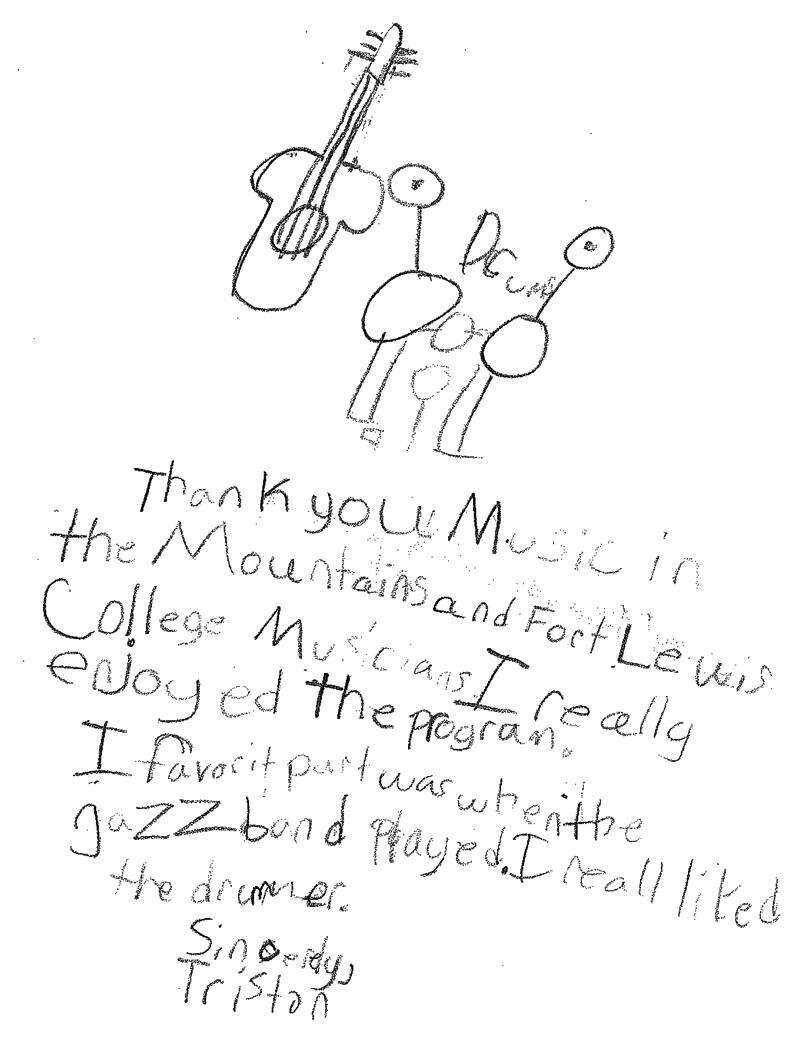 Drums
Thank you Music in
the Mountains and Fort Lewis
College Musicians. I really
enjoyed the program.
I favorit part was when the
jazz band played. I reall liked
the drummer.
Sincerely,
Tristan